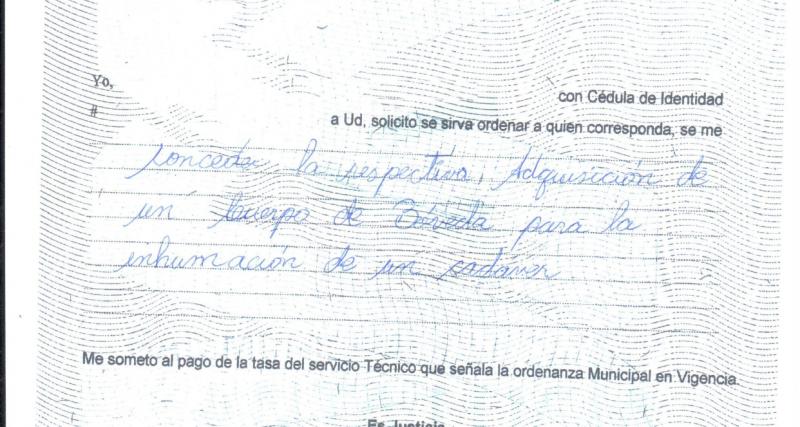 Yo,
con Cédula de Identidad
#
a Ud, solicito se sirva ordenar a quien corresponda, se me
conceder la respectiva, Adquisición de
un Cuerpo de Bóveda para la
inhumación de un cadáver.
Me someto al pago de la tasa del servicio Técnico que señala la ordenanza Municipal en Vigencia.
Es Justicia